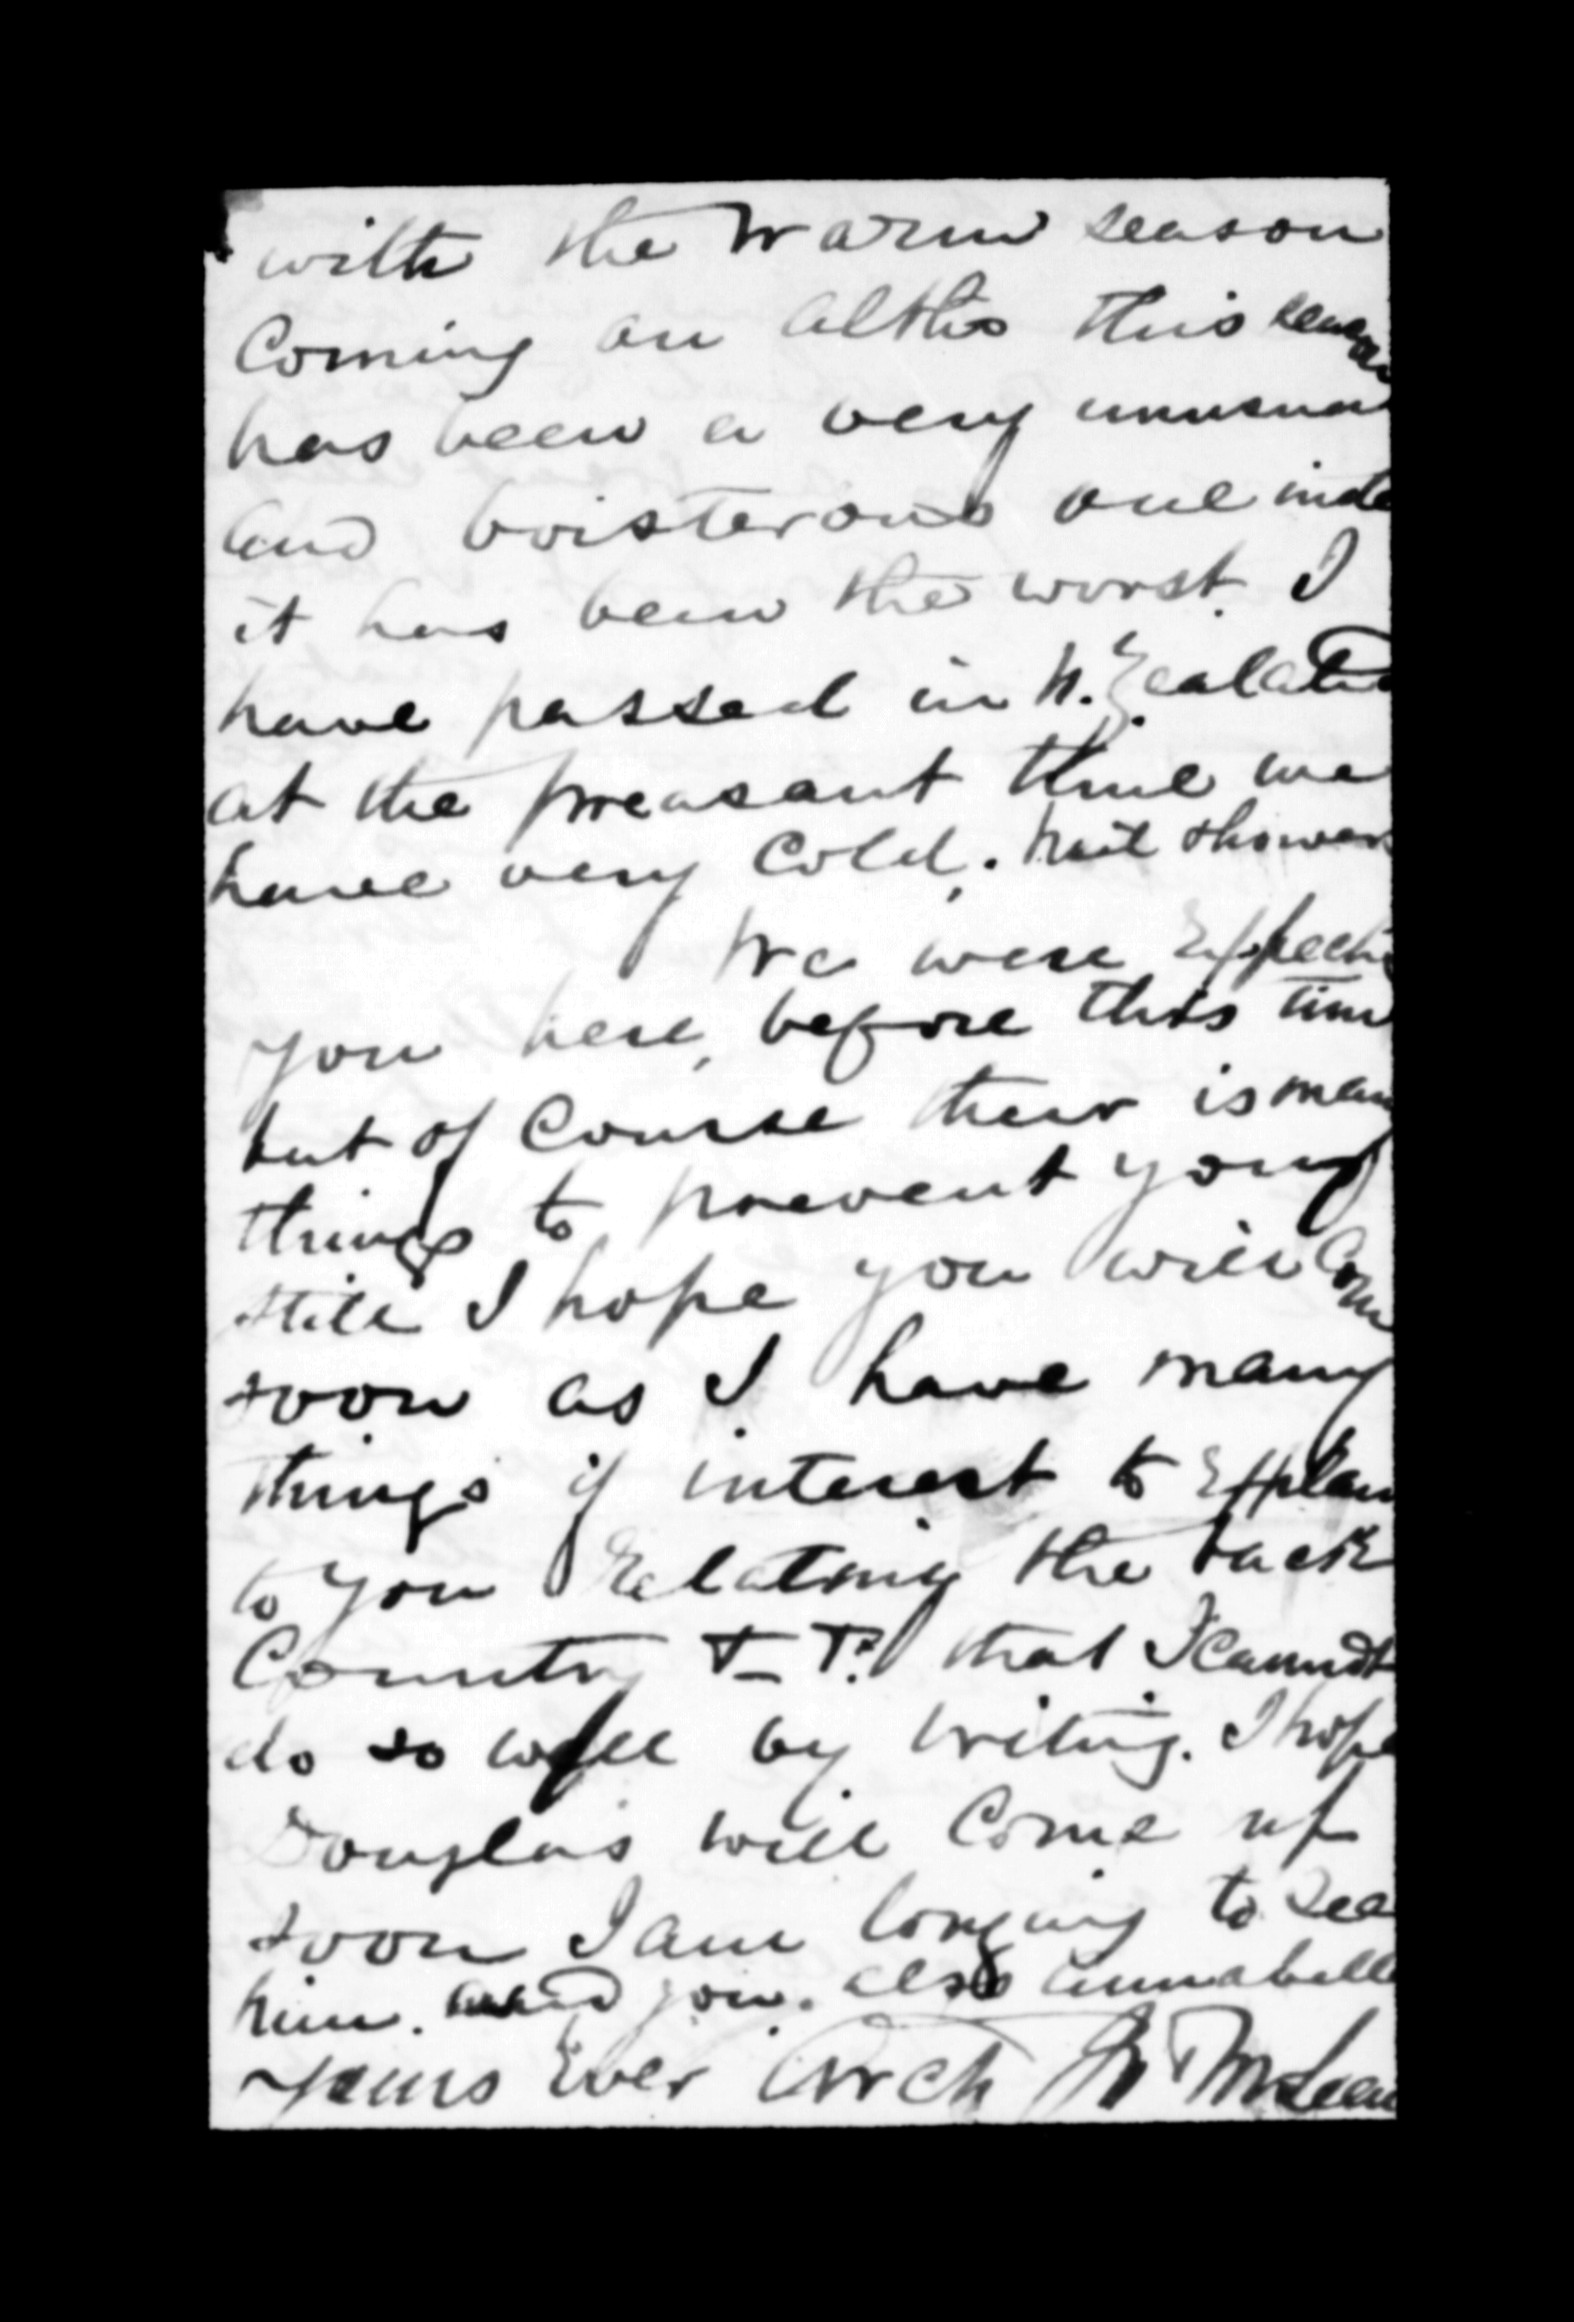 with the warm season
Coming on altho this season
has been a very unusual
and boisterous one inde
it has been the worst I
have passed in N. Zealand
at the preasant time we
have very Cold, . hail shower
We were Expecti
you here, before this time
but of Course their is many
things to prevent you
still I hope you will Com
soon as I have many
things of interest to Explain
to you Relating the back
Country that I cannot
do so well by writing. I hope
Douglas will Come up
soon I am longing to see
him. and you. also annabella
yours Ever Arch McLean